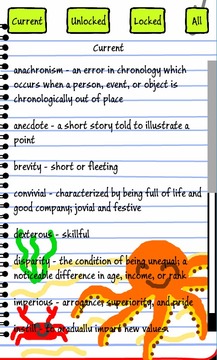 Current Unlocked Locked All
Current
anachronism - an error in chronology which
occurs when a person, event, or object is
chronologically out of place
anecdote - a short story told to illustrate a
point
brevity - short or fleeting
convivial - characterized by being full of life and
good company; jovial and festive
dexterous - skillful
disparity - the condition of being unequal; a
noticeable difference in age, income, or rank
imperious - arrogance, superiority, and pride
instill - to gradually impart new values